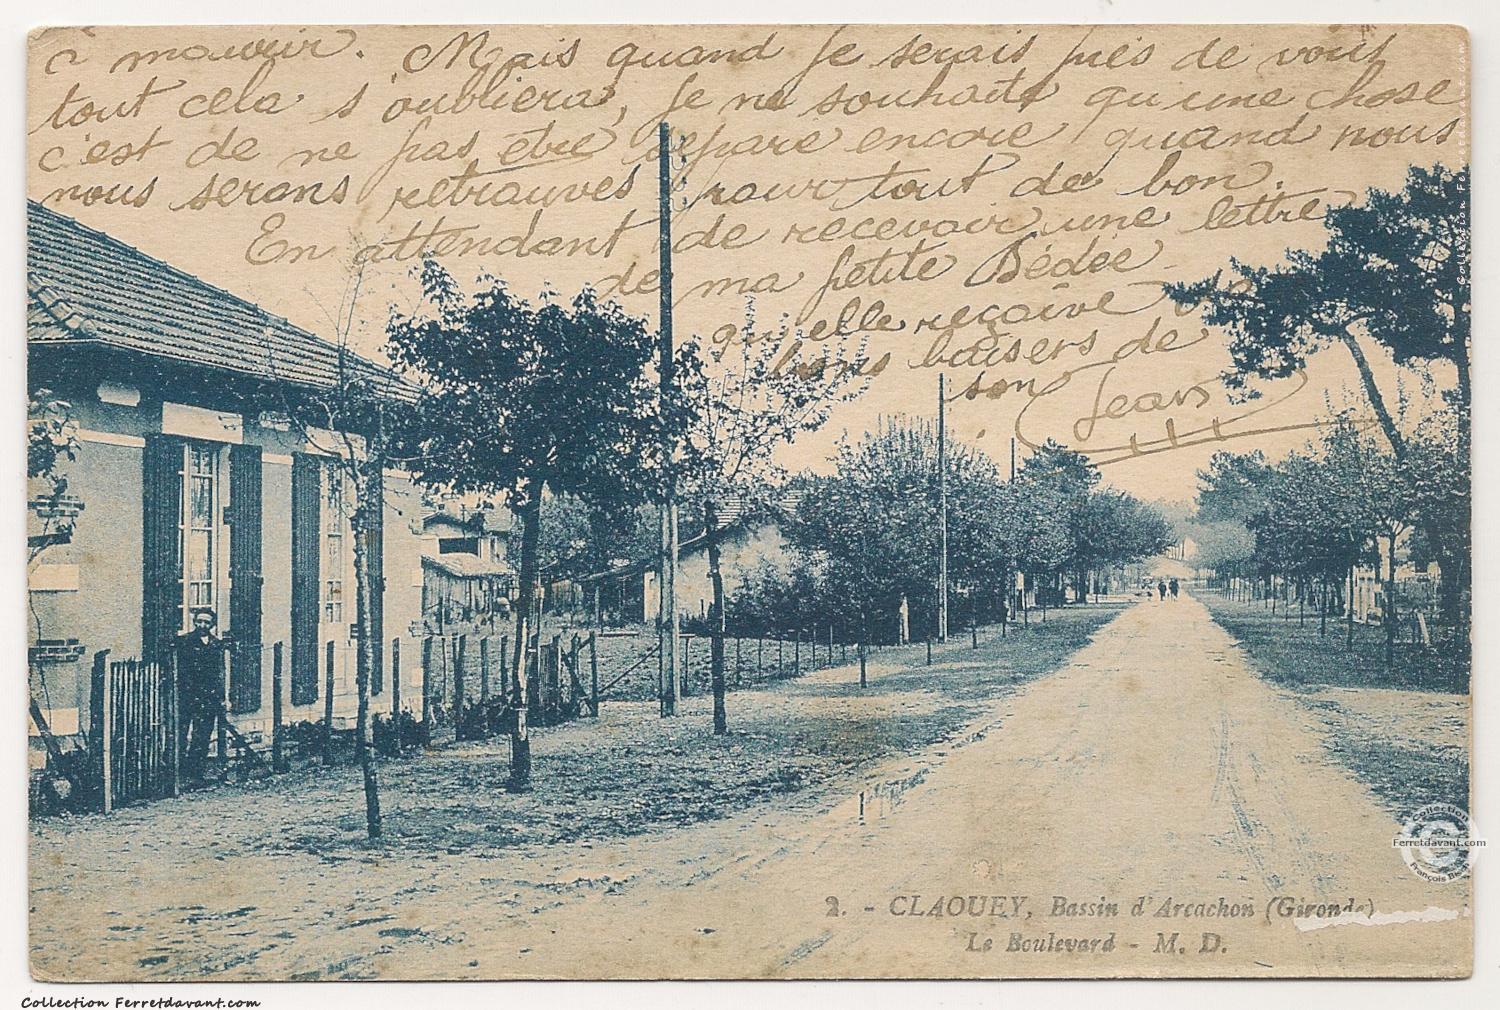 à mourir. Mais quand je serais près de vous
tout cela s'oubliera, je ne souhaite qu'une chose
c'est de ne pas être séparé encore quand nous
nous serons retrouvés pour tout de bon.
En attendant de recevoir une lettre
de ma petite Dédée
qu'elle reçoive de
bons baisers de
son Jean
2. - CLAOUEY, Bassin d'Arcachon (Gironde)
Le Boulevard - M. D.
Collection Ferretdavant.com
Collection
Ferretdavant.com
François Bisch
Collection Ferretdavant.com